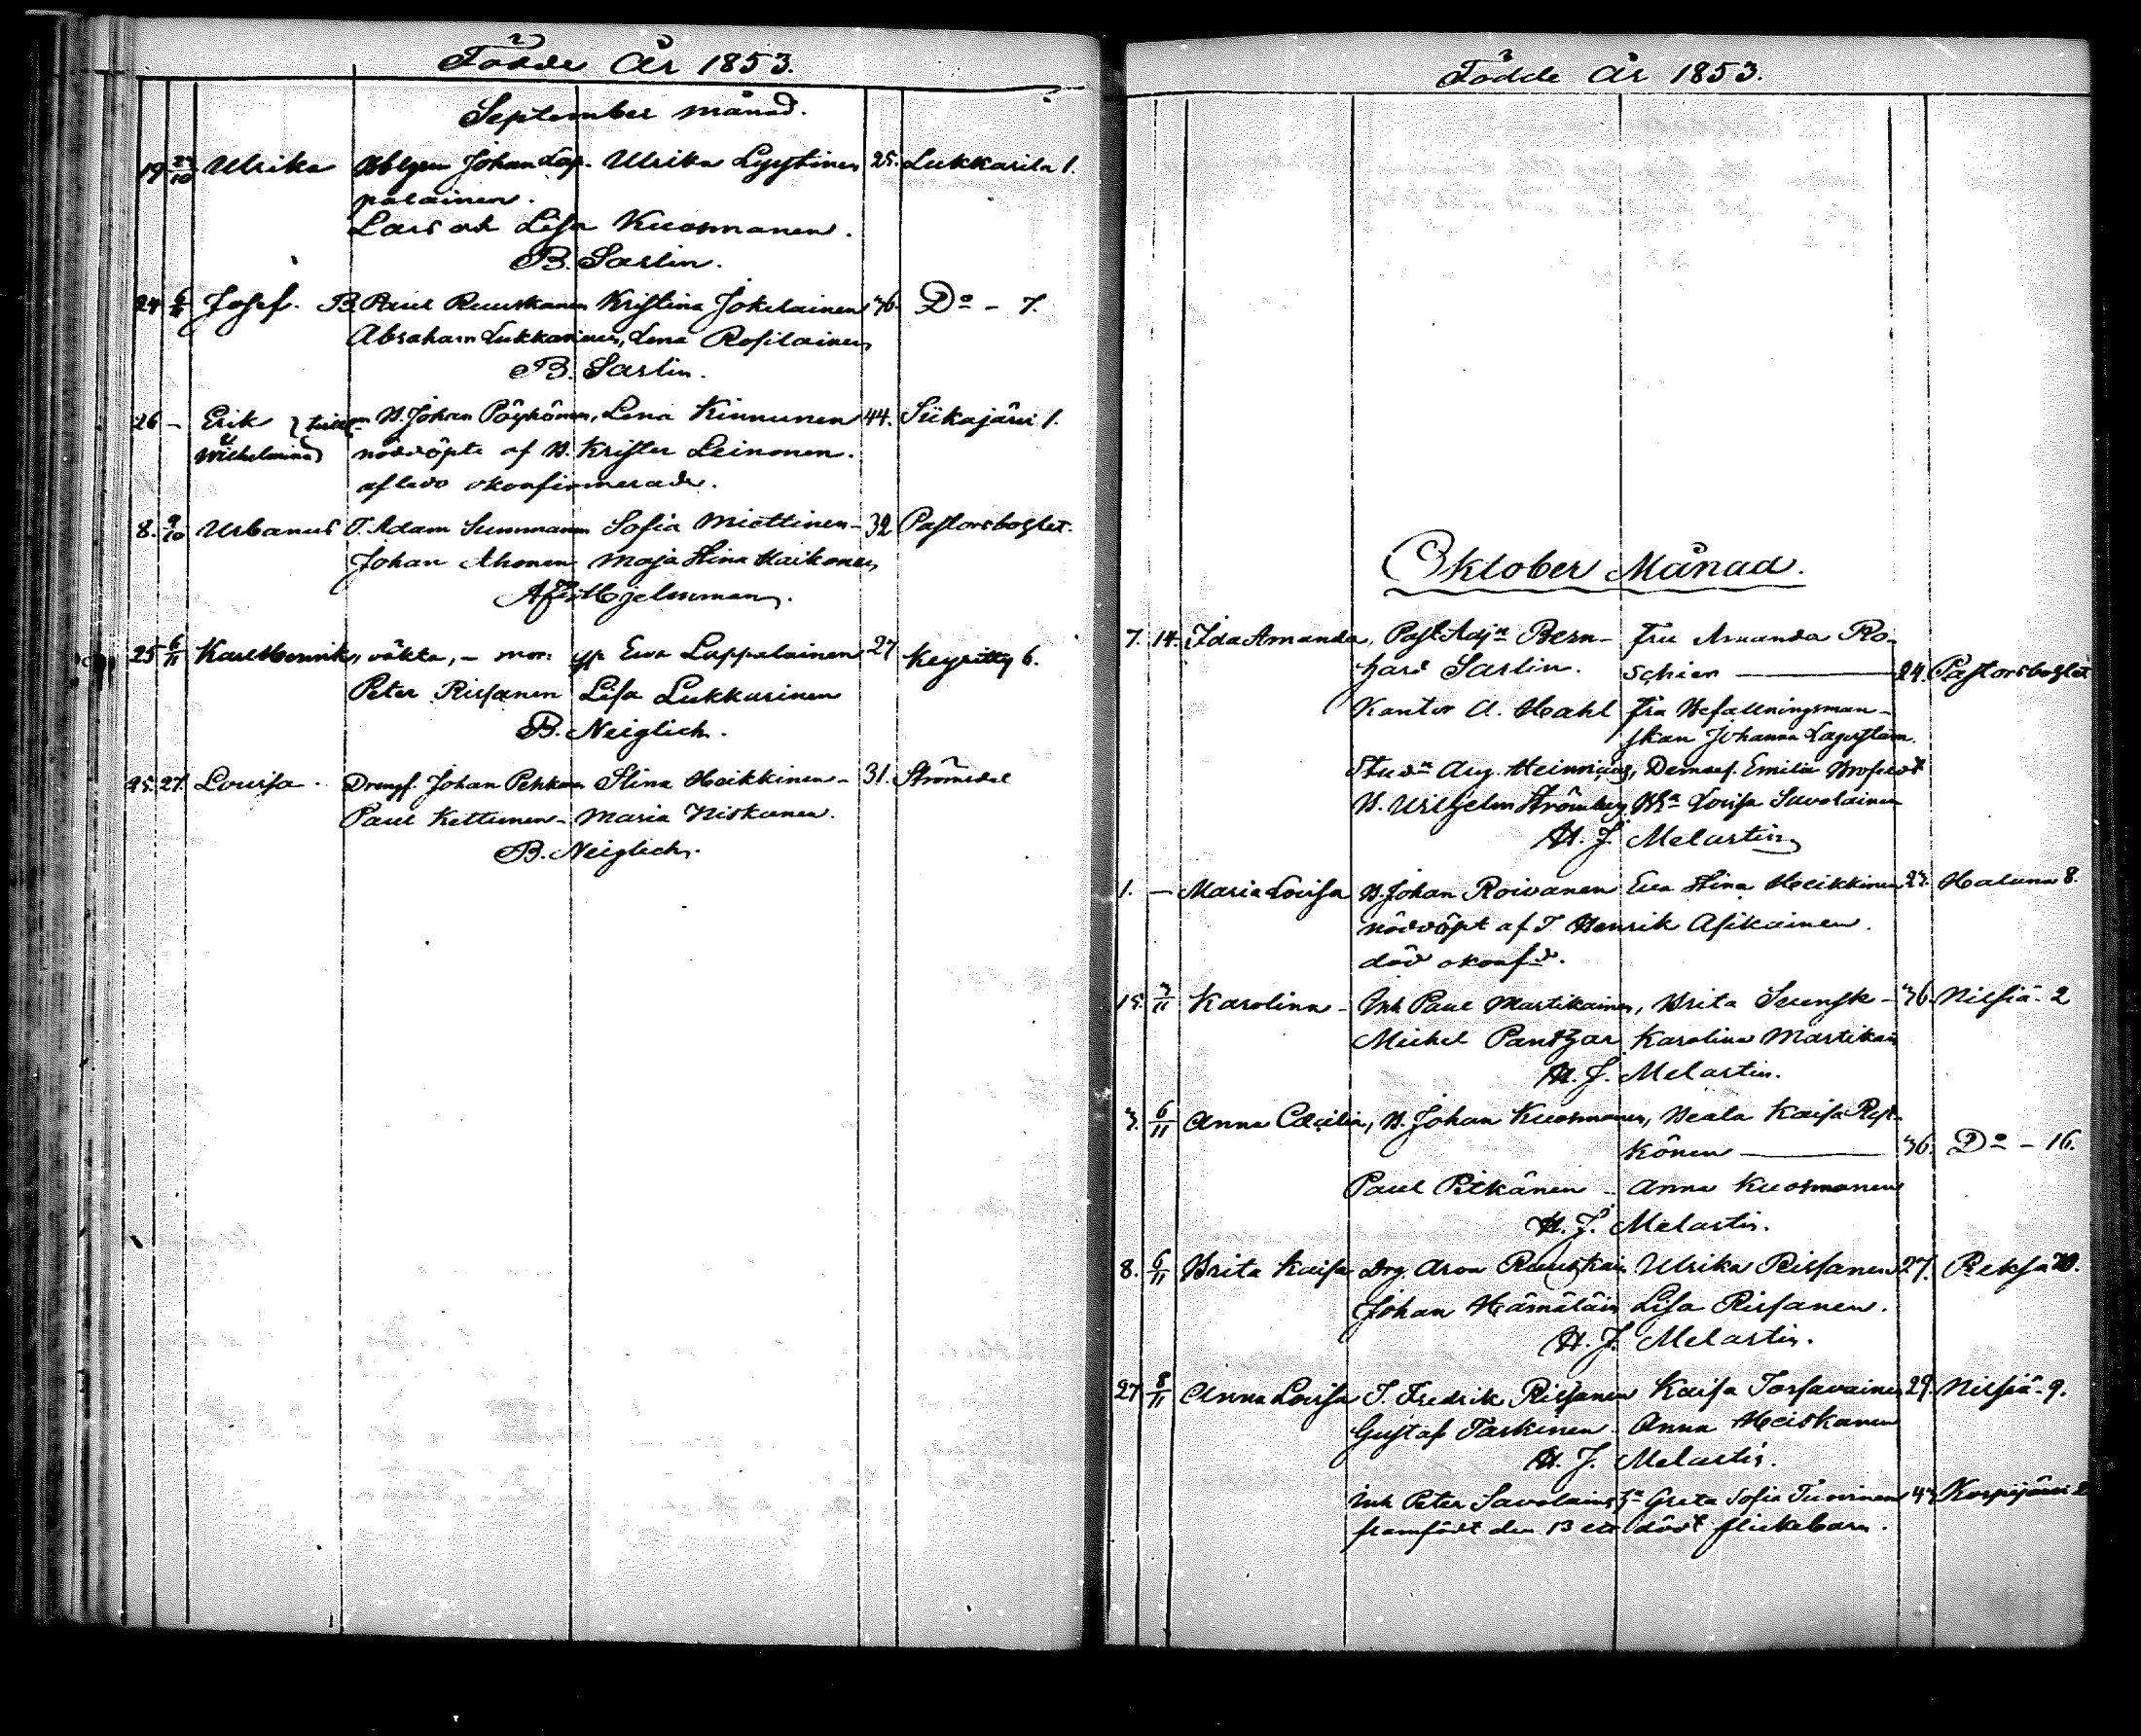 Födde År 1853.
September månad.
19 23/10 Ulrika Johan Lap- Ulrika Lyytinen 25. Lukkarila 1.
palainen.
Lars och Lisa Kuosmanen.
B. Sarlin.
24 6/11 Josef. B. Paul Ruuskanen Kristina Jokelainen 36. Do - 7.
Abraham Lukkarinen, Lena Rosilainen
B. Sarlin.
26 - Erik B. Johan Pöyhönen, Lena Kinnunen 44. Siikajärvi 1.
et
Wilhelmina nöddöpte af B. Krister Leinonen.
afledo okonfirmerade.
8. 9/10 Urbanus T. Adam Summanen Sofia Miettinen - 32 Pastorsbostet.
Johan Ahonen Maja Stina Haikonen
Hjelmman.
25 6/11 Karl Henrik, oäkta, - mor. Eva Lappalainen 27 Keyritty 6.
Peter Rissanen Lisa Lukkarinen
B. Neiglich.
25. 27. Lovisa. Johan Pehkon Stina Heikkinen - 31. Strömsdal
Paul Kettunen - Maria Niskanen.
B. Neiglich.
Födde År 1853.
Oktober Månad.
7. 14. Ida Amanda, Past. Adj. Bern- Fru Amanda Ro-
hard Sarlin. schier 24. Pastorsbostet
Kantor A. Hahl Fru Befallningsman-
skan Johanna Lagerstam.
Stud. Aug. Heinricius, Demois. Emilia
B. Wilhelm Strömberg, Lovisa Savolainen
H. J. Melartin
1. - Maria Lovisa B. Johan Roivanen Eva Stina Heikkinen 23. Haluna 8.
nöddöpt af T. Henrik Asikainen.
död okonfd.
15. 3/11 Karolina - Inh Paul Martikainen, Brita Svensk - 36. Nilsiä - 2
Michel Pantzar Karolina Martikain
H. J. Melartin.
3. 6/11 Anna Cæcilia, B. Johan Kuosmanen, Beata Kaisa
könen 36. Do - 16.
Paul Pitkänen - Anna Kuosmanen
H. J. Melartin.
8. 6/11 Brita Kaisa Drg. Aron Ruuskain Ulrika Rissanen 27. Reksa 20.
Johan Hämäläin Lisa Rissanen.
H. J. Melartin.
27 8/11 Anna Lovisa T. Fredrik Rissanen Kaisa Torsavainen 29. Nilsiä - 9.
Gustaf Taskinen - Anna Heiskanen
H. J. Melartin.
Inh Peter Savolains Greta Sofia Tuovinen 43 Korpijärvi 2
framfödt den 13 ett dödt flickebarn.